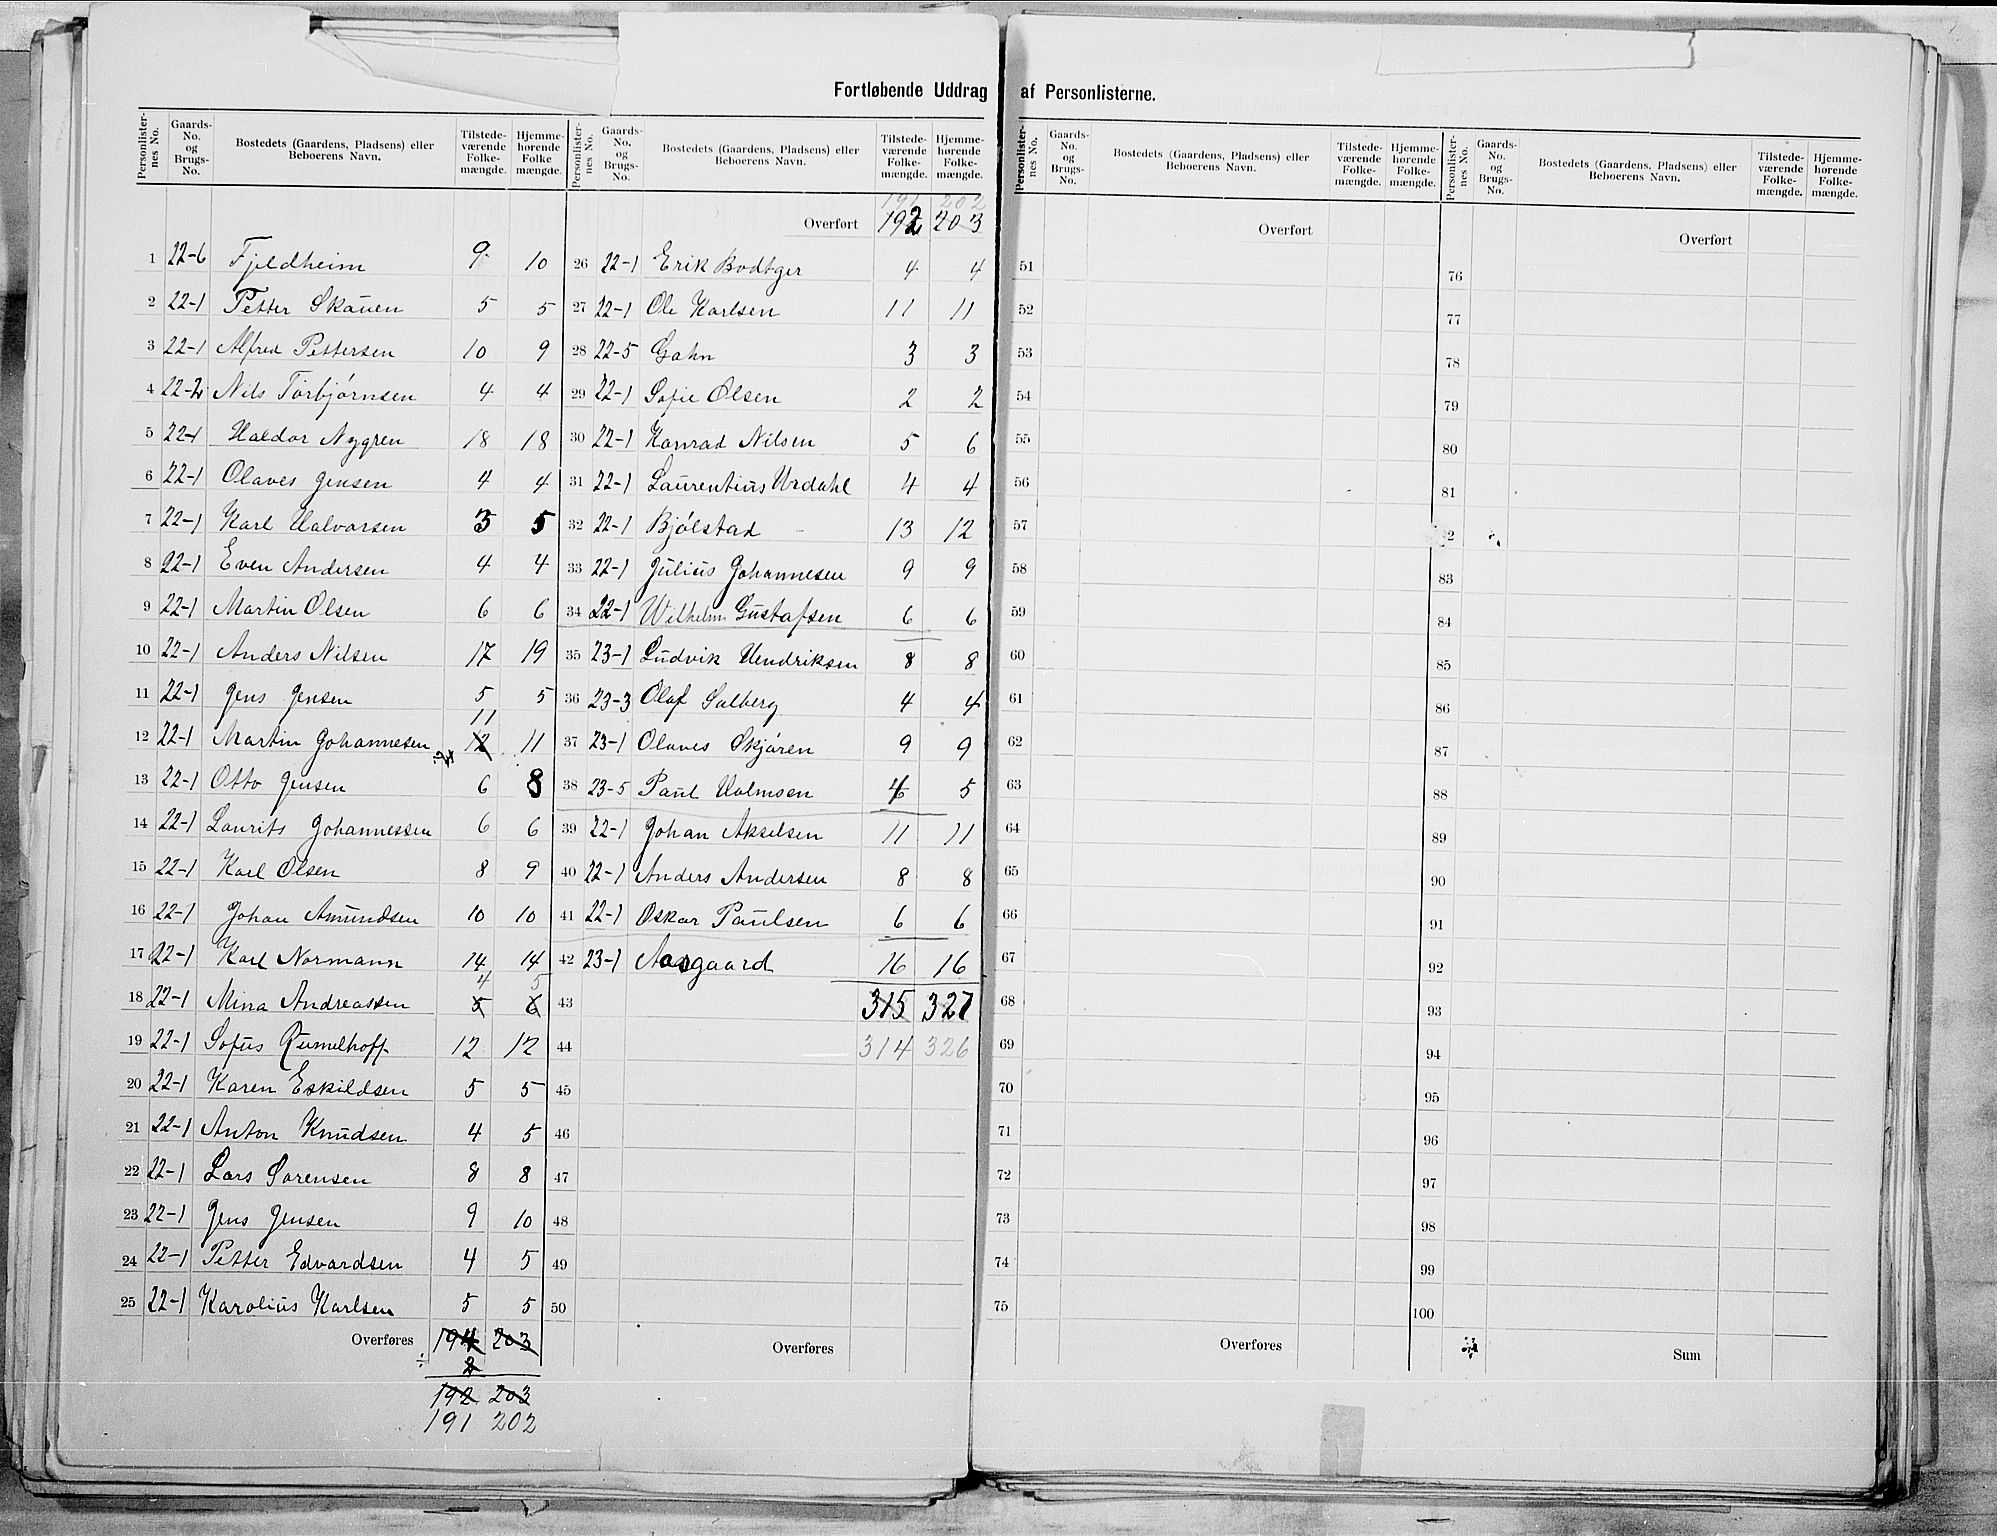 Fortløbende Uddrag af Personlisterne.
Personlisternes No. Gaards-No. og Brugs-No. Bostedets (Gaardens, Pladsens) eller Beboerens Navn. Tilstedeværende Folkemængde. Hjemmehørende Folkemængde.
1 22-6 Fjeldheim 9 10
2 22-1 Petter Skauen 5 5
3 22-1 Alfred Pettersen 10 9
4 22-2 Nils Torbjørnsen 4 4
5 22-1 Haldor Nygren 18 18
6 22-1 Olaves Jensen 4 4
7 22-1 Karl Halvorsen 3 5
8 22-1 Even Andersen 4 4
9 22-1 Martin Olsen 6 6
10 22-1 Anders Nilsen 17 19
11 22-1 Jens Jensen 5 5
11
12 22-1 Martin Johannesen 12 11
13 22-1 Otto Jensen 6 8
14 22-1 Laurits Johannessen 6 6
15 22-1 Karl Olsen 8 9
16 22-1 Johan Amundsen 10 10
17 22-1 Karl Normann 14 14
4 5
18 22-1 Mina Andreassen 5 6
19 22-1 Sofus Rumelhoff 12 12
20 22-1 Karen Eskildsen 5 5
21 22-1 Anton Knudsen 4 5
22 22-1 Lars Sørensen 8 8
23 22-1 Jens Jensen 9 10
24 22-1 Petter Edvardsen 4 5
25 22-1 Karolius Karlsen 5 5
Overføres 194 203
÷ 2
192 203
191 202
Personlisternes No. Gaards-No. og Brugs-No. Bostedets (Gaardens, Pladsens) eller Beboerens Navn. Tilstedeværende Folkemængde. Hjemmehørende Folkemængde.
191 202
Overført 192 203
26 22-1 Erik Bodtger 4 4
27 22-1 Ole Karlsen 11 11
28 22-5 Gahn 3 3
29 22-1 Sofie Olsen 2 2
30 22-1 Konrad Nilsen 5 6
31 22-1 Laurentius Urdahl 4 4
32 22-1 Bjølstad 13 12
33 22-1 Julius Johannesen 9 9
34 22-1 Wilhelm Gustafsen 6 6
35 23-1 Ludvik Hendriksen 8 8
36 23-3 Olaf Solberg 4 4
37 23-1 Olaves Skjøren 9 9
38 23-5 Paul Holmsen 4 5
39 22-1 Johan Akselsen 11 11
40 22-1 Anders Andersen 8 8
41 22-1 Oskar Paulsen 6 6
42 23-1 Aasgaard 16 16
43 315 327
44 314 326
45
46
47
48
49
50
Overføres
Personlisternes No. Gaards-No. og Brugs-No. Bostedets (Gaardens, Pladsens) eller Beboerens Navn. Tilstedeværende Folkemængde. Hjemmehørende Folkemængde.
Overført
51
52
53
54
55
56
57
58
59
60
61
62
63
64
65
66
67
68
69
70
71
72
73
74
75
Overføres
Personlisternes No. Gaards-No. og Brugs-No. Bostedets (Gaardens, Pladsens) eller Beboerens Navn. Tilstedeværende Folkemængde. Hjemmehørende Folkemængde.
Overført
76
77
78
79
80
81
2
83
84
85
86
87
88
89
90
91
92
93
94
95
96
97
98
99
100
Sum